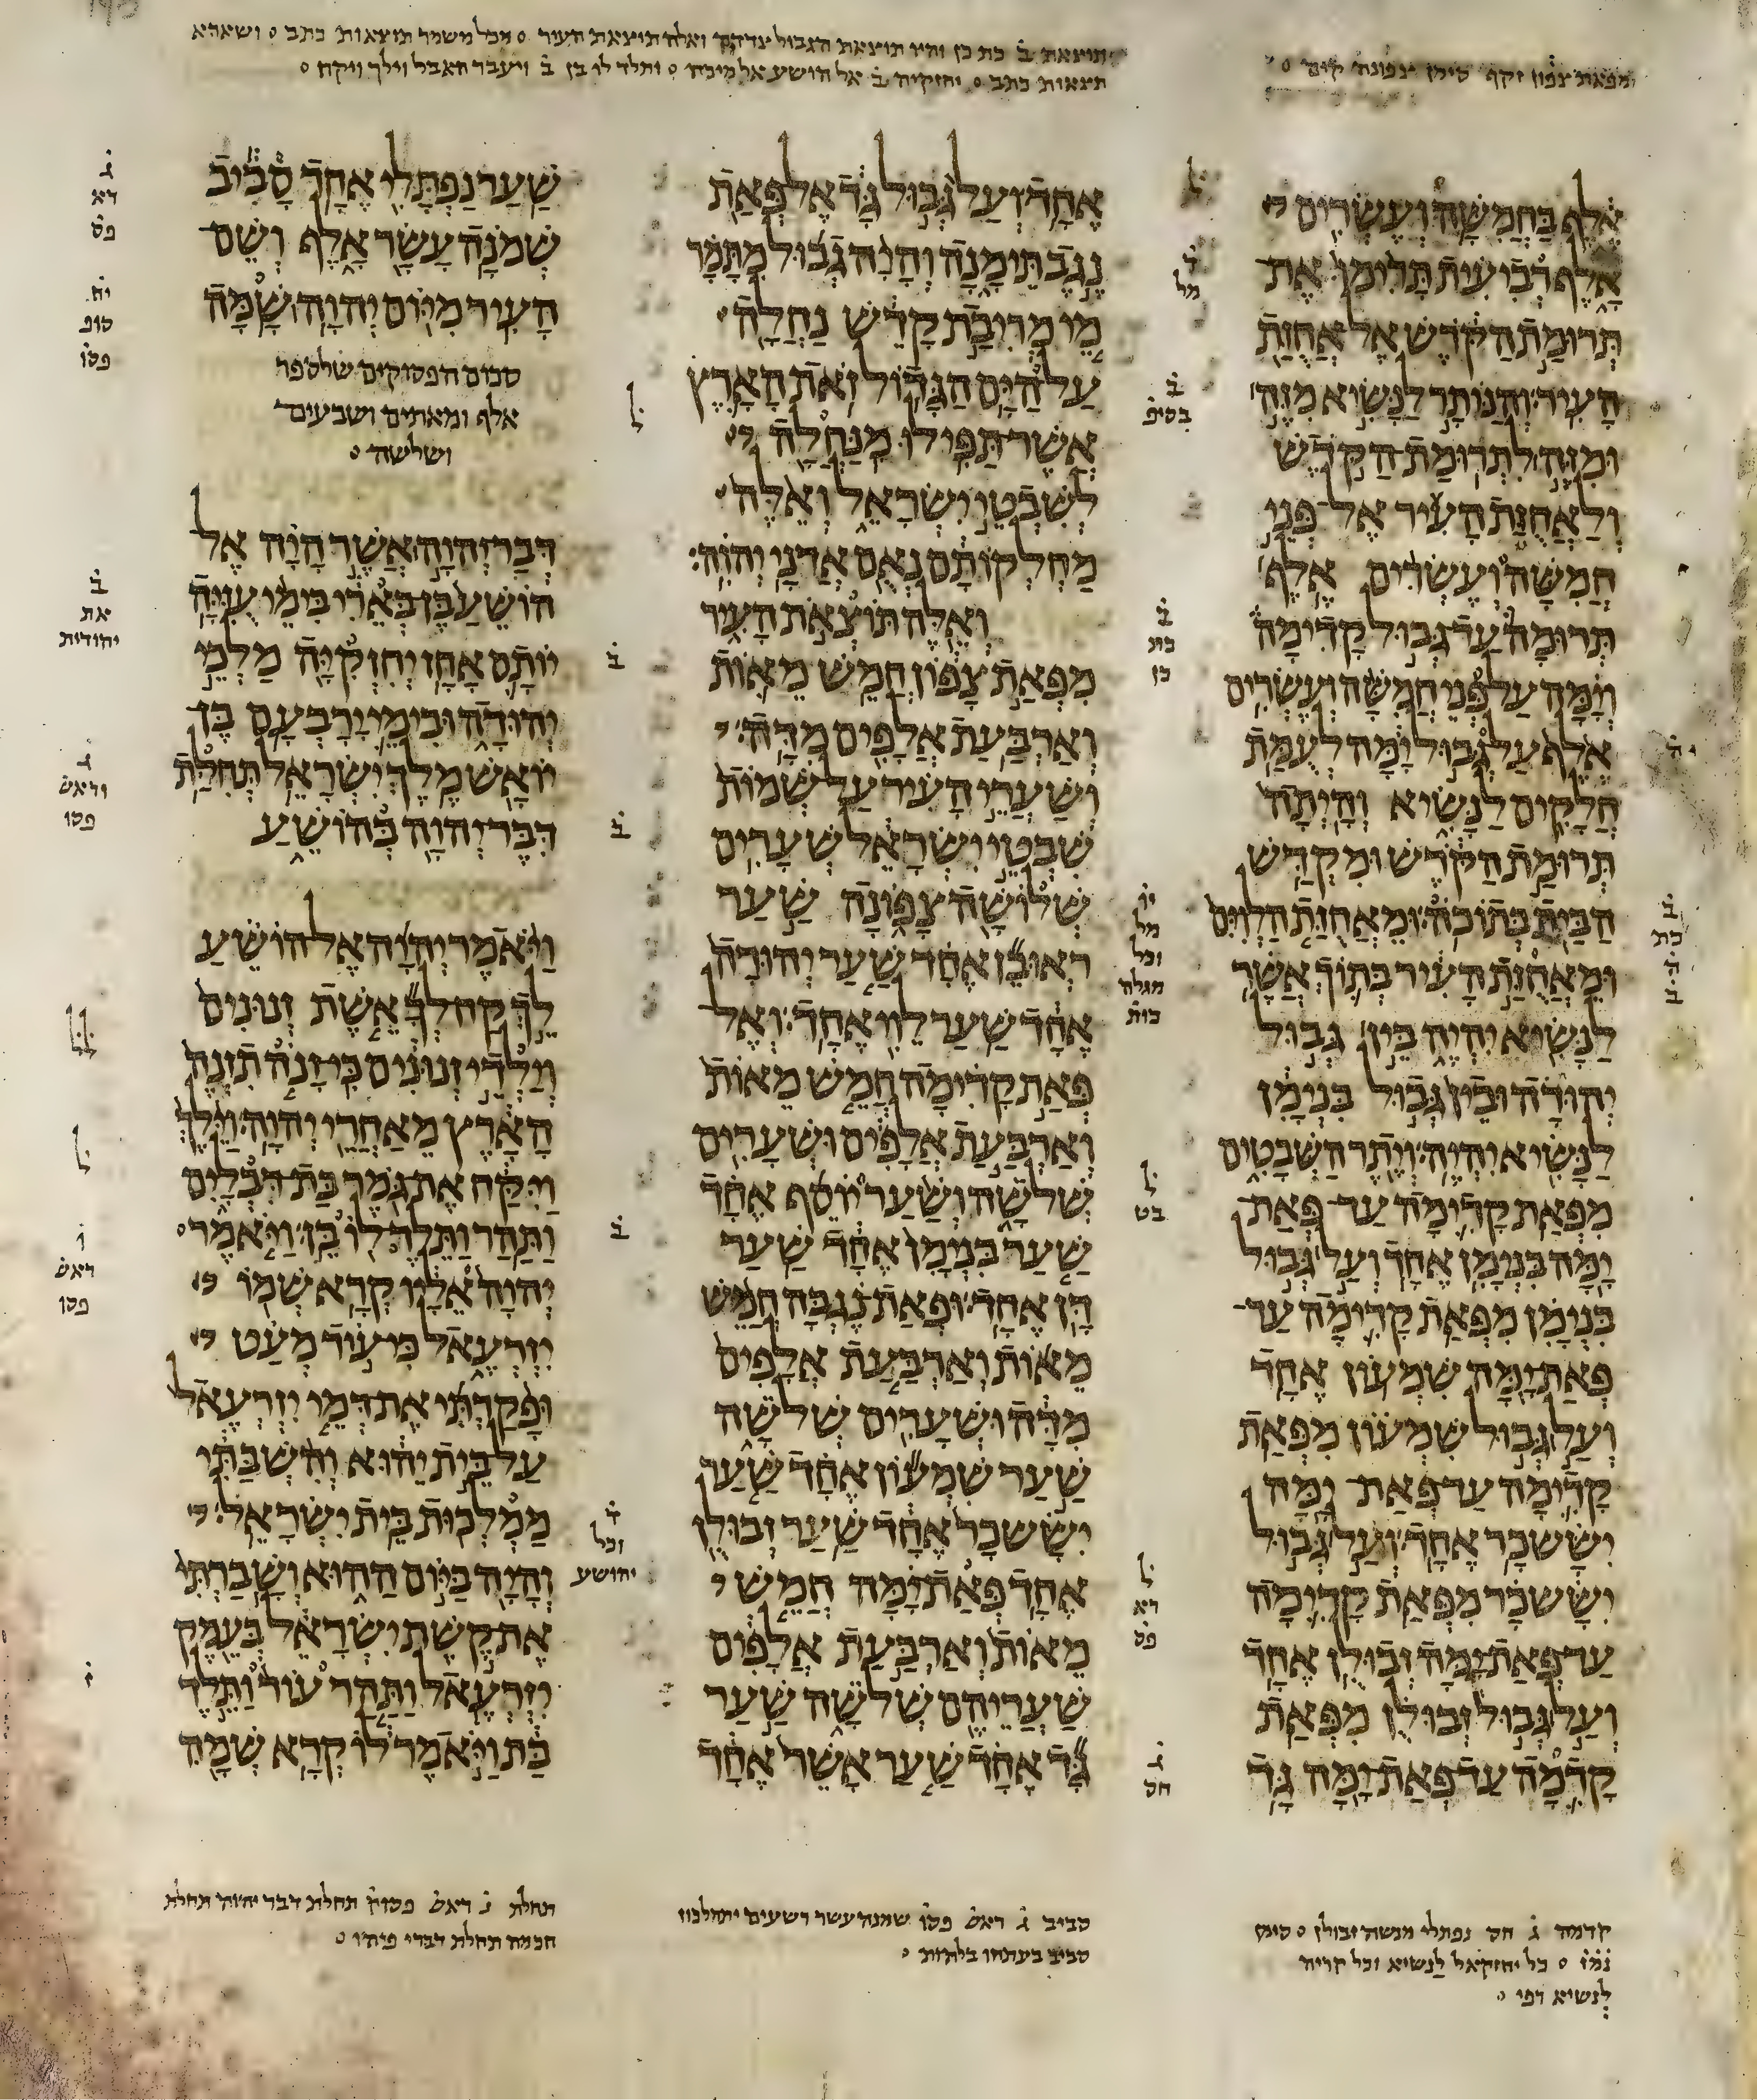 מפאת צפון זקף סימן צפונה קדים
תוצאת ב̇ כת כן והיו תוצאת הגבול צדדה ואלה תוצאת העיר ○ מכל משמר תוצאות כתב ○ ושארא
תצאות כתב ○ יחזקיה ב̇ אל הושע אל מיכה ○ ותלד לו בן ב̇ ויעבר האבל וילך ויקח ○
אלף בחמשה ועשרים
אלף רביעית תרימו את
תרומת הקדש אל אחזת
העיר והנותר לנשיא מזה
ומזה לתרומת הקדש
ולאחזת העיר אל פני
חמשה ועשרים אלף
תרומה עד גבול קדימה
וימה על פני חמשה ועשרים
אלף על גבול ימה לעמת
חלקים לנשיא והיתה
תרומת הקדש ומקדש
הבית בתוכה ומאחזת הלוים
ומאחזת העיר בתוך אשר
לנשיא יהיה בין גבול
יהודה ובין גבול בנימן
לנשיא יהיה ויתר השבטים
מפאת קדימה עד פאת
ימה בנימן אחד ועל גבול
בנימן מפאת קדימה עד
פאת ימה שמעון אחד
ועל גבול שמעון מפאת
קדימה עד פאת ימה
יששכר אחד ועל גבול
יששכר מפאת קדימה
עד פאת ימה זבולן אחד
ועל גבול זבולן מפאת
קדמה עד פאת ימה גד
ל
ד
מל
ב
בסיפ
ב
כת
כן
יו
מל
וכל
מגלה
כות
ל
בט
ל
רא
פס
ג
חס
ב
כת
ה
ב
אחד ועל גבול גד אל פאת
נגב תימנה והיה גבול מתמר
מי מריבת קדש נחלה
על הים הגדול זאת הארץ
אשר תפילו מנחלה
לשבטי ישראל ואלה
מחלקותם נאם אדני יהוה
ואלה תוצאת העיר
מפאת צפון חמש מאות
וארבעת אלפים מדה
ושערי העיר על שמות
שבטי ישראל שערים
שלושה צפונה שער
ראובן אחד שער יהודה
אחד שער לוי אחד ואל
פאת קדימה חמש מאות
וארבעת אלפים ושערים
שלשה ושער יוסף אחד
שער בנימן אחד שער
דן אחד ופאת נגבה חמש
מאות וארבעת אלפים
מדה ושערים שלשה
שער שמעון אחד שער
יששכר אחד שער זבולן
אחד פאת ימה חמש
מאות וארבעת אלפים
שעריהם שלשה שער
גד אחד שער אשר אחד
ל
ב
ב
ב
ד
וכל
יהושע
שער נפתלי אחד סביב
שמנה עשר אלף ושם
העיר מיום יהוה שמה
סכום הפסוקים שלספר
אלף ומאתים ושבעים
ושלשה ○
דבר יהוה אשר היה אל
הושע בן בארי בימי עזיה
יותם אחז יחזקיה מלכי
יהודה ובימי ירבעם בן
יואש מלך ישראל תחלת
דבר יהוה בהושע
ויאמר יהוה אל הושע
לך קח לך אשת זנונים
וילדי זנונים כי זנה תזנה
הארץ מאחרי יהוה וילך
ויקח את גמר בת דבלים
ותהר ותלד לו בן ויאמר
יהוה אליו קרא שמו
יזרעאל כי עוד מעט
ופקדתי את דמי יזרעאל
על בית יהוא והשבתי
ממלכות בית ישראל
והיה ביום ההוא ושברתי
את קשת ישראל בעמק
יזרעאל ותהר עוד ותלד
בת ויאמר לו קרא שמה
ג
רא
פס
יח
סופ
פסו
ב
את
יהודית
ג
וראש
פסו
ל ל
ל
ו
ראש
פסו
ז
קדמה ג̇ חס נפתלי מנשה זבולן ○ סימן
נמז ○ כל יחזקאל לנשיא וכל קריה
לנשיא דפי ○
סביב ג̇ ראש פסו שמנה עשר רשעים יתהלכון
סביב בעתהו בלהות ○
תחלת ג̇ ראש פסוק תחלת דבר יהוה תחלת
חכמה תחלת דברי פיהו ○